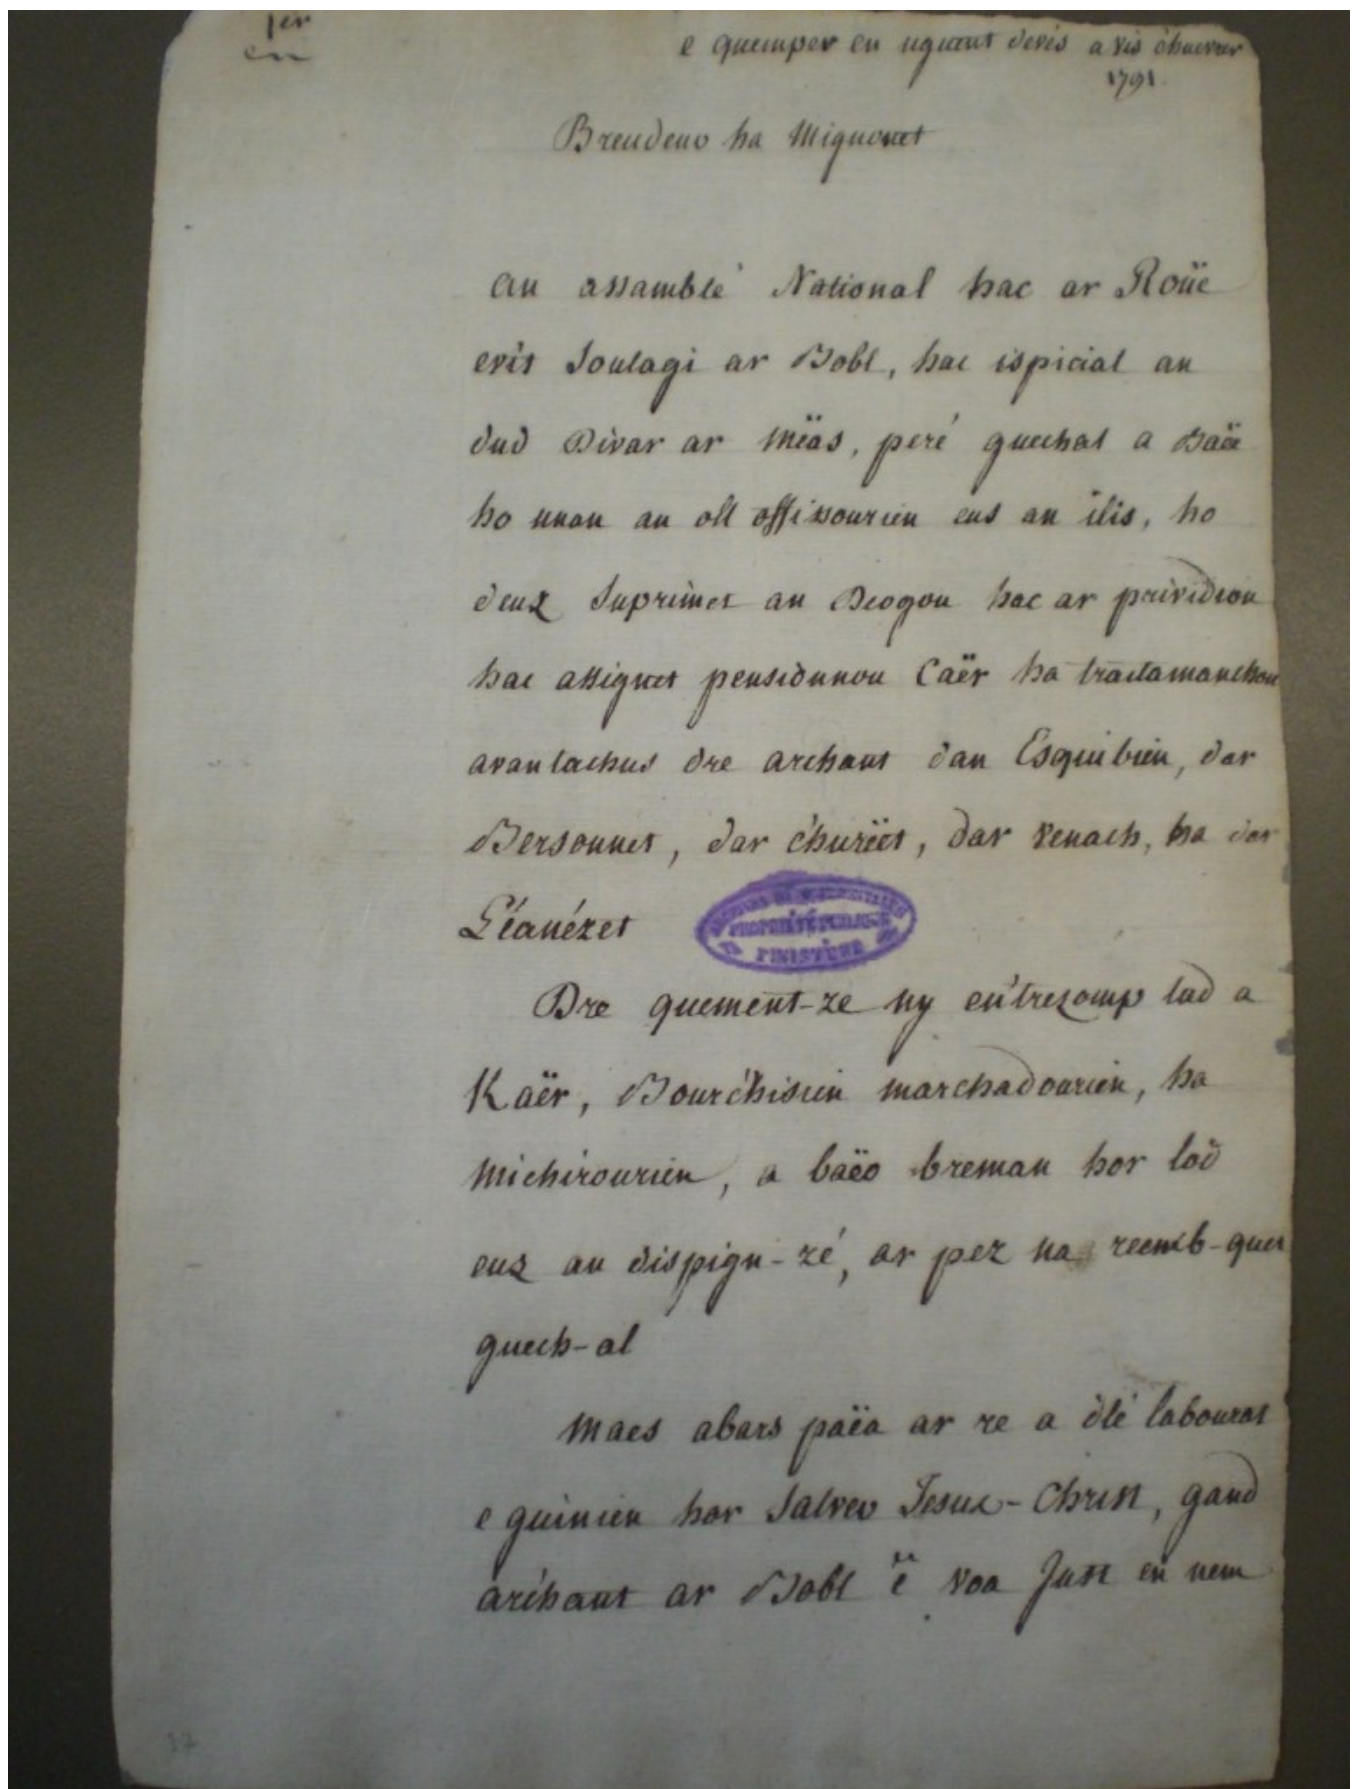 per
en
e quemper en uguent devis a vis c'huevrer
1791
Breudeur ha Mignonet
an assamblé National hac ar Roüe
evit Soulagi ar Bobl, hac ispicial an
dud Divar ar mëas, peré guechal a Baëe
ho unan an oll offissourien eus an ilis, ho
deuz Suprimet an Deogou hac ar prividiou
hac assignet pensionnou Caër ha tractamanchou
avantachus dre archant dan Esquibien, dar
Bersonnet, dar c'hureet, dar venach, ha dar
Léanézet
ARCHIVES DÉPARTEMENTALES
PROPRIÉTÉ PUBLIQUE
FINISTÈRE
Dre quement-ze ny entrezomp tud a
Kaër, Bourc'hisien marchadourien, ha
michérourien, a baëo breman hor lod
euz an dispign-zé, ar pez na reemb-quet
guech-al
maes abars paëa ar re a dlé labourat
e guinien hor Salver Jesus-Christ, gand
arc'hant ar Bobl ë voa Just en nem